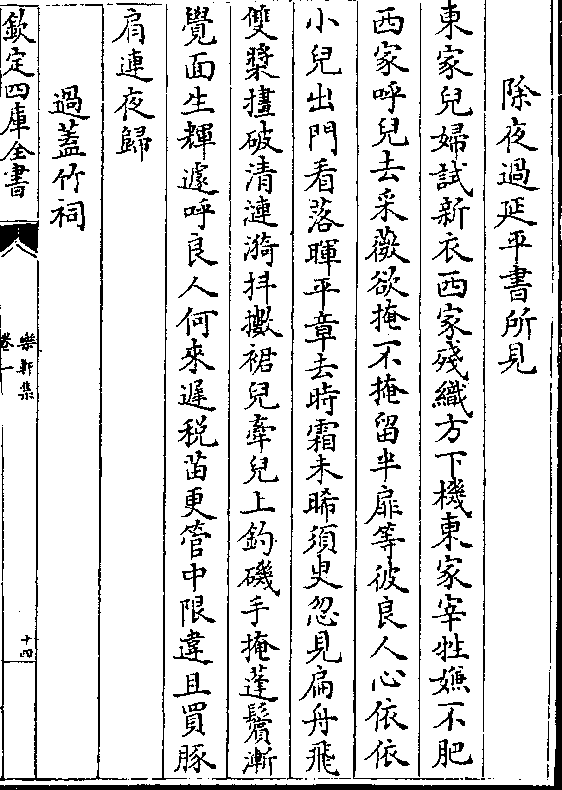 除夜過延平書所見
東家兒婦試新衣西家殘織方下機東家宰牲嫌不肥
西家呼兒去采薇欲掩不掩留半扉等彼良人心依依
小兒出門看落暉平章去時霜未晞須臾忽見扁舟飛
雙槳攆破清漣漪抖擻裙兒牽兒上釣磯手掩蓬鬢漸
覺面生輝遽呼良人何來遲税苗更管中限違且買豚
肩連夜歸
過蓋竹祠
欽定四庫全書
樂軒集
卷一
十四